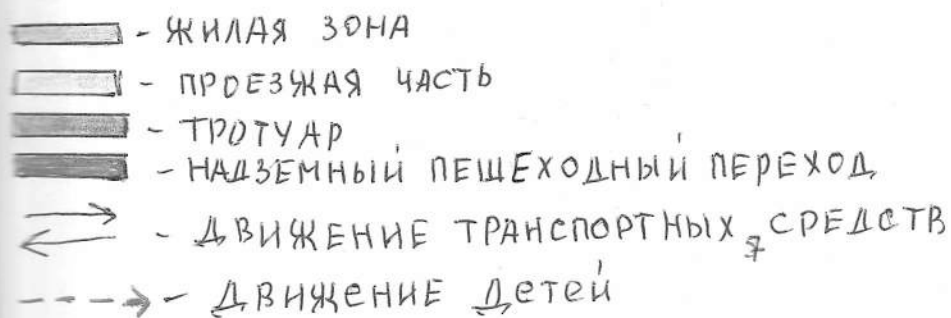 - ЖИЛАЯ ЗОНА
- ПРОЕЗЖАЯ ЧАСТЬ
- ТРОТУАР
- НАДЗЕМНЫЙ ПЕШЕХОДНЫЙ ПЕРЕХОД
- ДВИЖЕНИЕ ТРАНСПОРТНЫХ СРЕДСТВ
- ДВИЖЕНИЕ ДЕТЕЙ